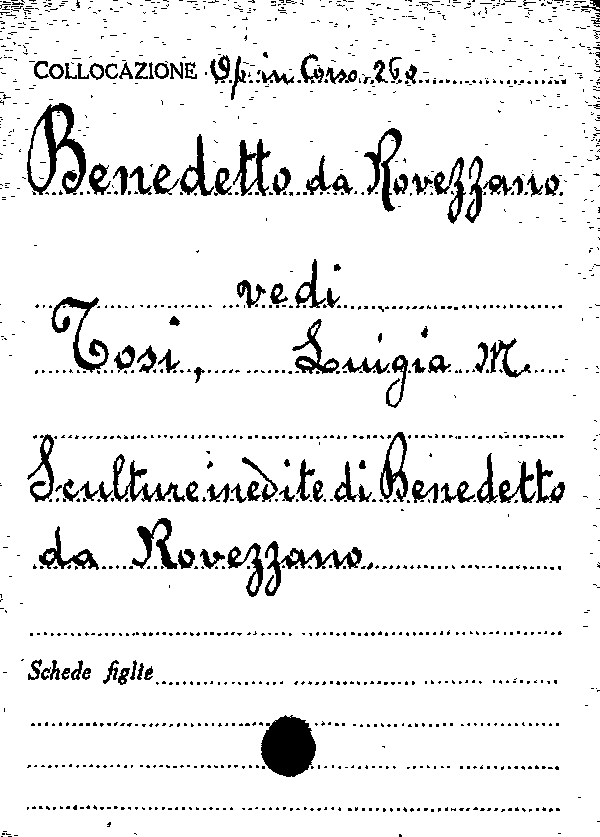 COLLOCAZIONE Op. in Corso. 260
Benedetto da Rovezzano
vedi
Tosi, Luigia M.
Sculture inèdite di Benedetto
da Rovezzano.
Schede figlie